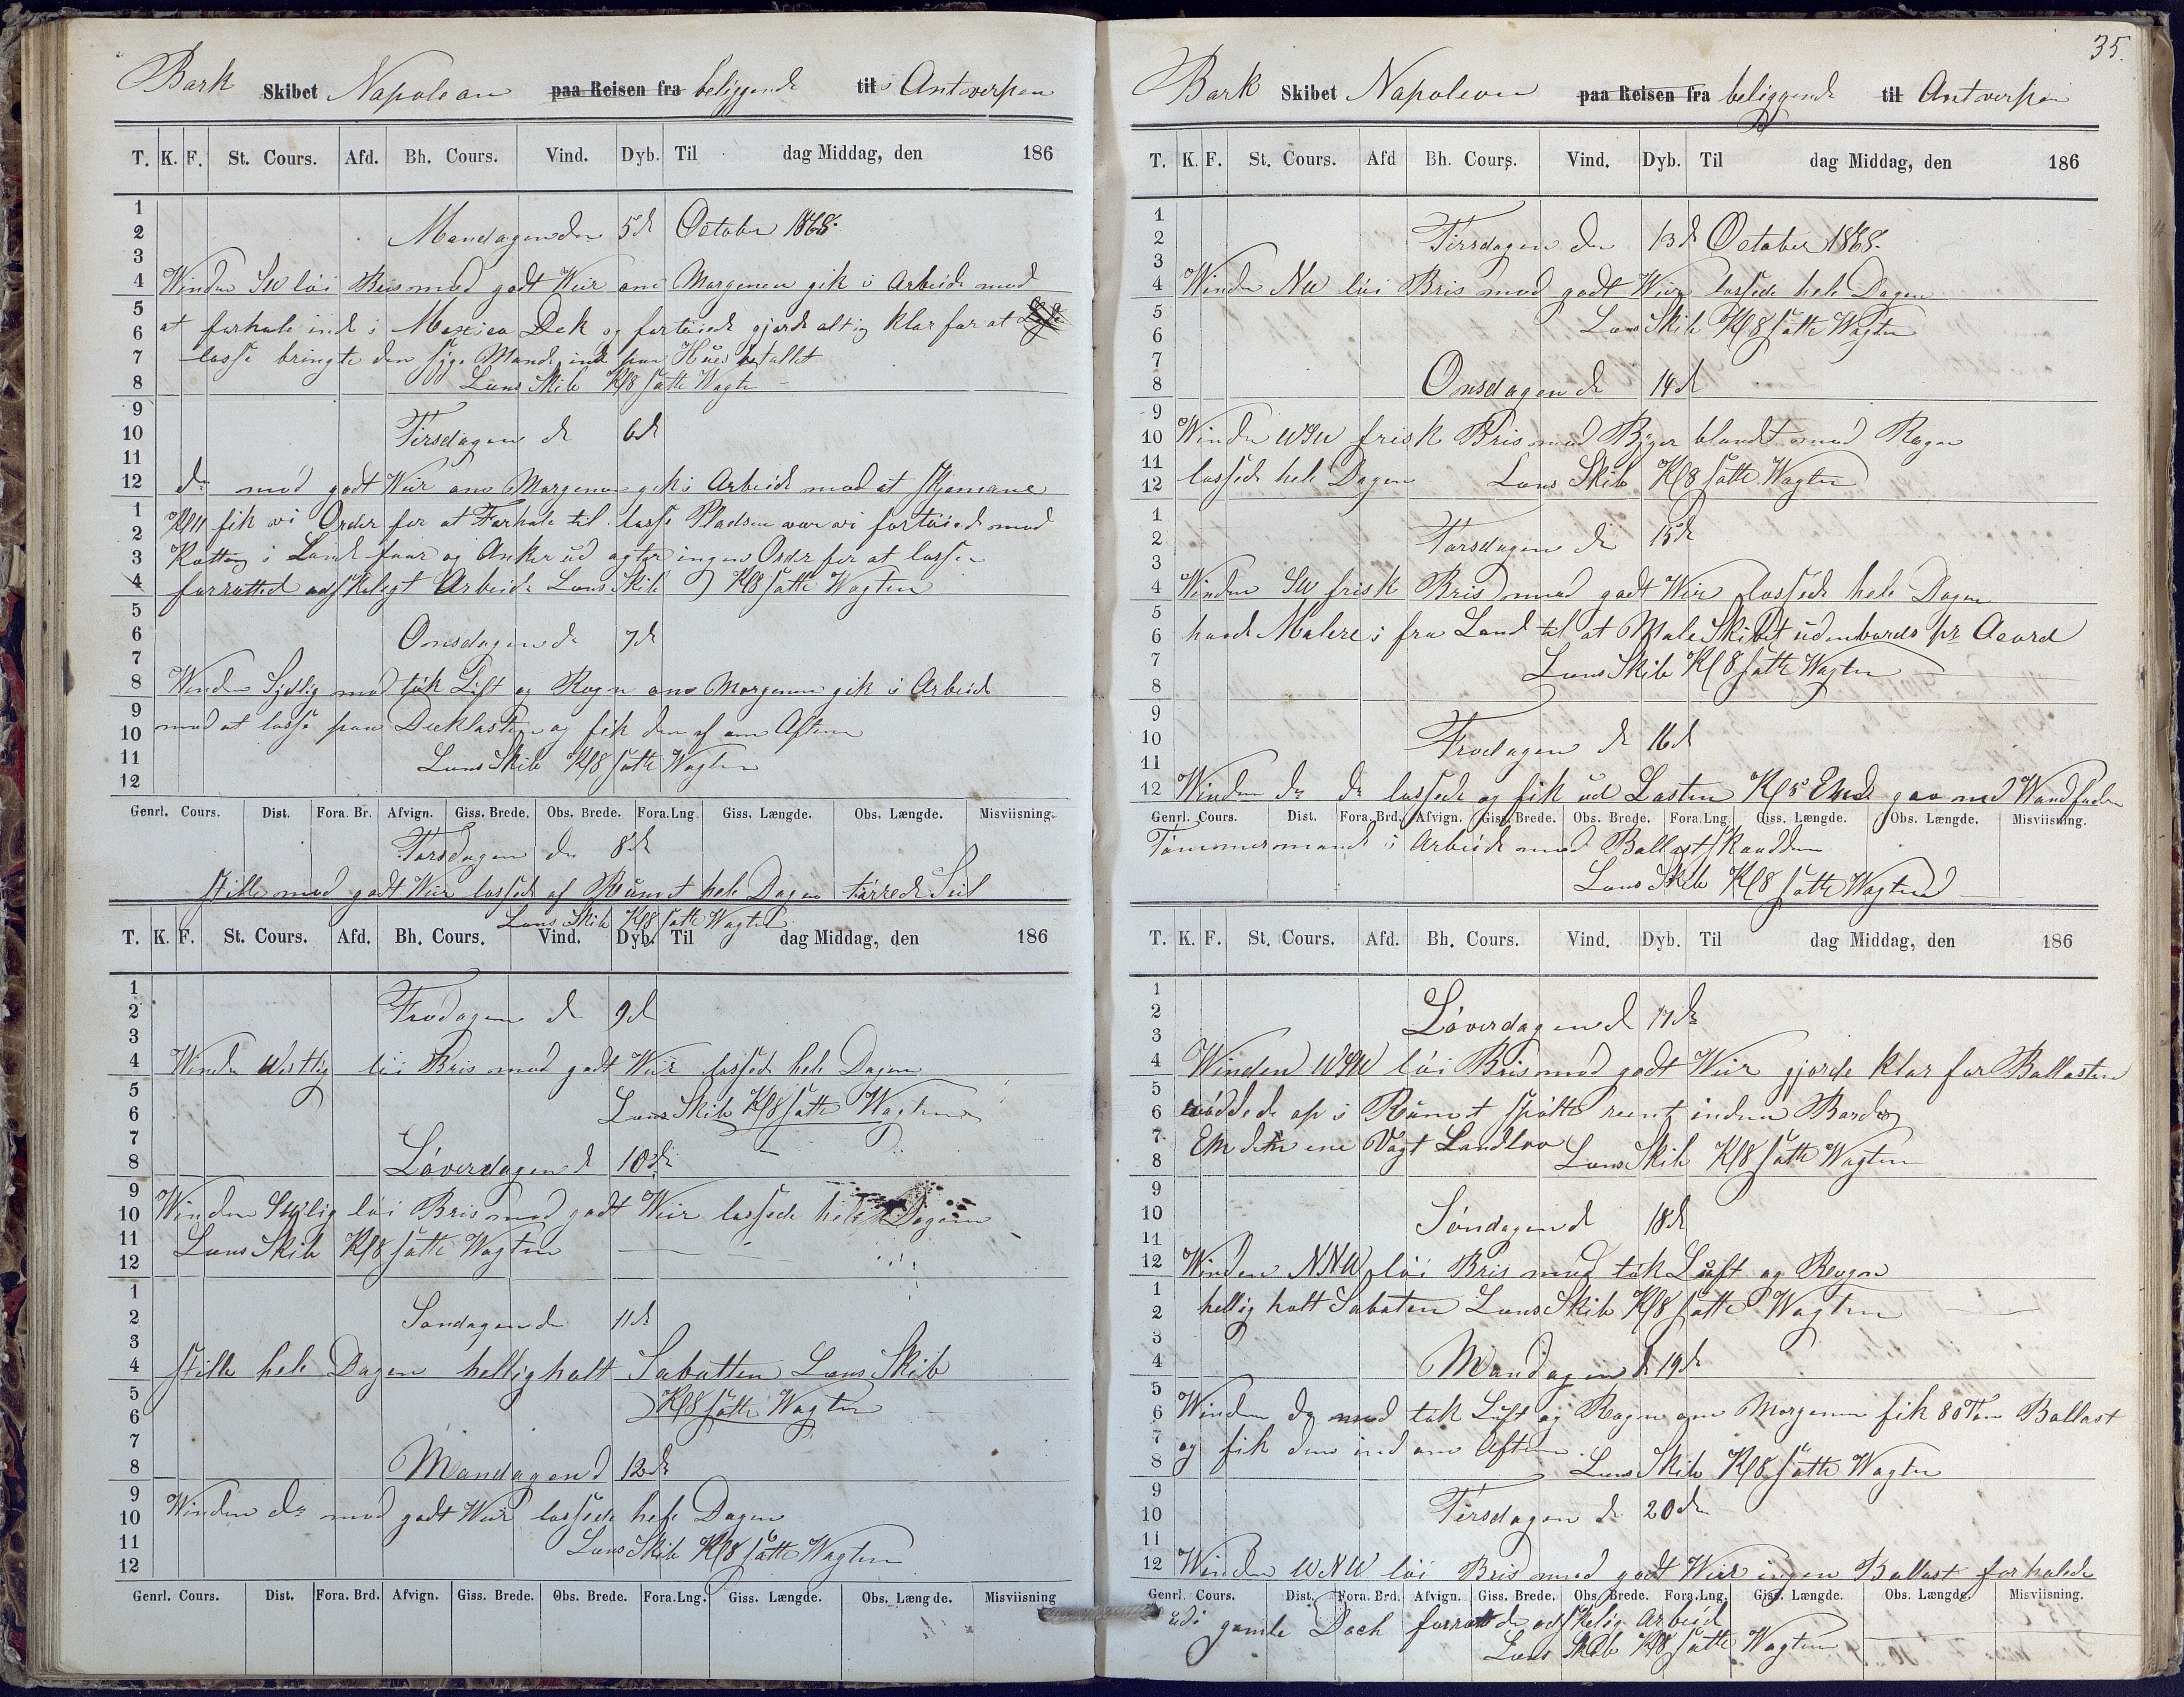 Bark Skibet Napoleon paa Reisen fra beliggende til i Antverpen
T. K. F. St. Cours. Afd. Bh. Cours. Vind. Dyb. Til dag Middag, den 186
1
2
3
4
5
6
7
8
9
10
11
12
1
2
3
4
5
6
7
8
9
10
11
12
Mandagen den 5d October 1868.
Winden SW löi Bris med godt Weir om Morgenen gik i Arbeide med
at forhale ind i Mexico Dok og fortöiede gjorde alting klar for at
losse bringte den syge Mand ind paa
Lens Skib Kl 8 satte Wagten
Tirsdagen d 6d
do med godt Weir om Morgenen gik i Arbeide med at
Kl 11 fik vi Order for at Forhale til losse Pladsen var vi fortöiede med
i Land foor og Anker ud agter ingen Order for at losse
forretted adskeligt Arbeide Lens Skib Kl 8 satte Wagten
Onsdagen d 7d
Winden Sydlig med tük Lüft og Regn om Morgenen gik i Arbeide
med at losse paa Decklasten og fik den af om Aftenen
Lens Skib Kl 8 satte Wagten
Genrl. Cours. Dist. Fora. Br. Afvign. Giss. Brede. Obs. Brede. Fora. Lng. Giss. Længde. Obs. Længde. Misviisning.
Torsdagen den 8d
stille med godt Weir lossede af Rümet hele Dagen törrede Seil
Lens Skib Kl 8 satte Wagten
T. K. F. St. Cours. Afd. Bh. Cours. Vind. Dyb. Til dag Middag, den 186
1
2
3
4
5
6
7
8
9
10
11
12
1
2
3
4
5
6
7
8
9
10
11
12
Fredagen d 9d
Winden Westlig löi Bris med godt Weir lossede hele Dagen
Lens Skib Kl 8 satte Wagten
Löverdagen d 10d
Winden SWlig löi Bris med godt Weir lossede hele Dagen
Lens Skib Kl 8 satte Wagten
Söndagen d 11d
stille hele Dagen helligholt Sabatten Lens Skib
Kl 8 satte Wagten
Mandagen d 12d
Winden do med godt Weir lossede hele Dagen
Lens Skib Kl 8 satte Wagten
Genrl. Cours. Dist. Fora. Brd. Afvign. Giss. Brede. Obs. Brede. Fora. Lng. Giss. Længde. Obs. Længde. Misviisning
35.
Bark Skibet Napoleon paa Reisen fra beliggende til Antverpen
T. K. F. St. Cours. Afd Bh. Cours. Vind. Dyb. Til dag Middag, den 186
1
2
3
4
5
6
7
8
9
10
11
12
1
2
3
4
5
6
7
8
9
10
11
12
Tirsdagen den 13d October 1868.
Winden NW löi Bris med godt Weir lossede hele Dagen
Lens Skib Kl 8 satte Wagten
Onsdagen d 14d
Winden WSW frisk Bris med Byger blandt med Regn
lossede hele Dagen Lens Skib Kl 8 satte Wagten
Torsdagen d 15d
Winden SW frisk Bris med godt Weir lossede hele Dagen
havde Malere i fra Land til at Male Skibet üdenbords pr Acord
Lens Skib Kl 8 satte Wagten
Fredagen d 16d
Winden do do lossede og fik üd Lasten Kl 5 gav med Wandfaden
Genrl. Cours. Dist. Fora. Brd. Afvign. Giss. Brede. Obs. Brede. Fora. Lng. Giss. Længde. Obs. Længde. Misviisning.
Tömmermand i Arbeide med Ballast
Lens Skib Kl 8 satte Wagten
T. K. F. St. Cours. Afd. Bh. Cours. Vind. Dyb. Til dag Middag, den 186
1
2
3
4
5
6
7
8
9
10
11
12
1
2
3
4
5
6
7
8
9
10
11
12
Löverdagen d 17d
Winden WSW löi Bris med godt Weir gjorde klar for Ballasten
röddede op i Rümet spölte reent inden Bords
den ene Vagt Landlov Lens Skib Kl 8 satte Wagten
Söndagen d 18d
Winden NNW löi Bris med tük Lüft og Regn
hellig holt Sabaten Lens Skib Kl 8 satte Wagten
Mandagen d 19d
Winden do med tük Lüft og Regn om Morgenen fik 80 Ton Ballast
og fik den ind om Aftenen. Lens Skib Kl 8 satte Wagten
Tirsdagen d 20d
Winden WNW löi Bris med godt Weir ingen Ballast forhalede
Genrl. Cours. Dist. Fora. Brd. Afvign. Giss. Brede. Obs. Brede. Fora. Lng. Giss. Længde. Obs. Længde. Misviisning.
üd i gamle Dock forrettede adskelig Arbeid
Lens Skib Kl 8 satte Wagten